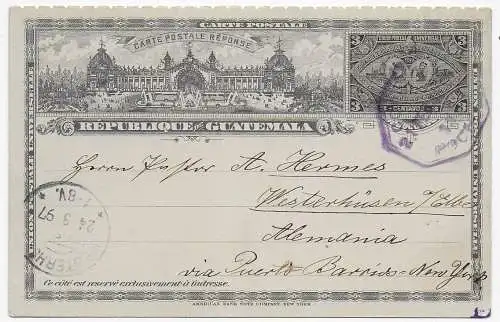 CARTE POSTALE
CARTE POSTALE RÉPONSE
UNION POSTALE UNIVERSELLE
3 CENTAVOS 3
RÉPUBLIQUE DE GUATEMALA
Herrn Pastor A. Hermes
Westerhüsen / Elbe
Alemania
via Puerto Barrios - New York
24 9 97
7-8V.
Ce côté est reservé exclusivement à l'adresse.
AMERICAN BANK NOTE COMPANY, NEW YORK